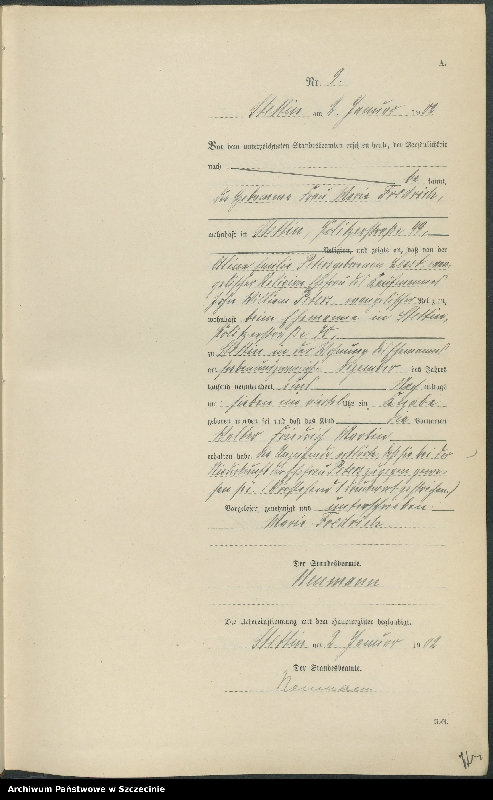 A.
Nr. 9.
Stettin am 2. Januar 1902
Vor dem unterzeichneten Standesbeamten erschien heute, der Persönlichkeit
nach
be kannt,
die Hebamme Frau Marie Friedrich,
wohnhaft in Stettin, Pölitzerstraße 99,
Religion, und zeigte an, daß von der
Peters geborenen evan-
gelischer Religion Ehefrau des Kaufmannes
William Peters evangelischer Religion,
wohnhaft beim Ehemanne in Stettin,
Pölitzerstraße
zu Stettin in der Wohnung des Ehemannes
am siebenundzwanzigsten Dezember des Jahres
tausend neunhundert eins Nachmittags
um sieben Uhr ein Knabe
geboren worden sei und daß das Kind die Vornamen
Walter Friedrich Martin
erhalten habe. Die erklärte, daß sie bei der
Niederkunft der Ehefrau Peters zugegen gewe-
sen sei. (Vorstehend 1 Druckwort gestrichen)
Vorgelesen, genehmigt und unterschrieben
Marie
Der Standesbeamte.
Neumann
Die Uebereinstimmung mit dem Hauptregister beglaubigt.
Stettin am 2. Januar 1902
Der Standesbeamte.
Neumann
Archiwum Państwowe w Szczecinie